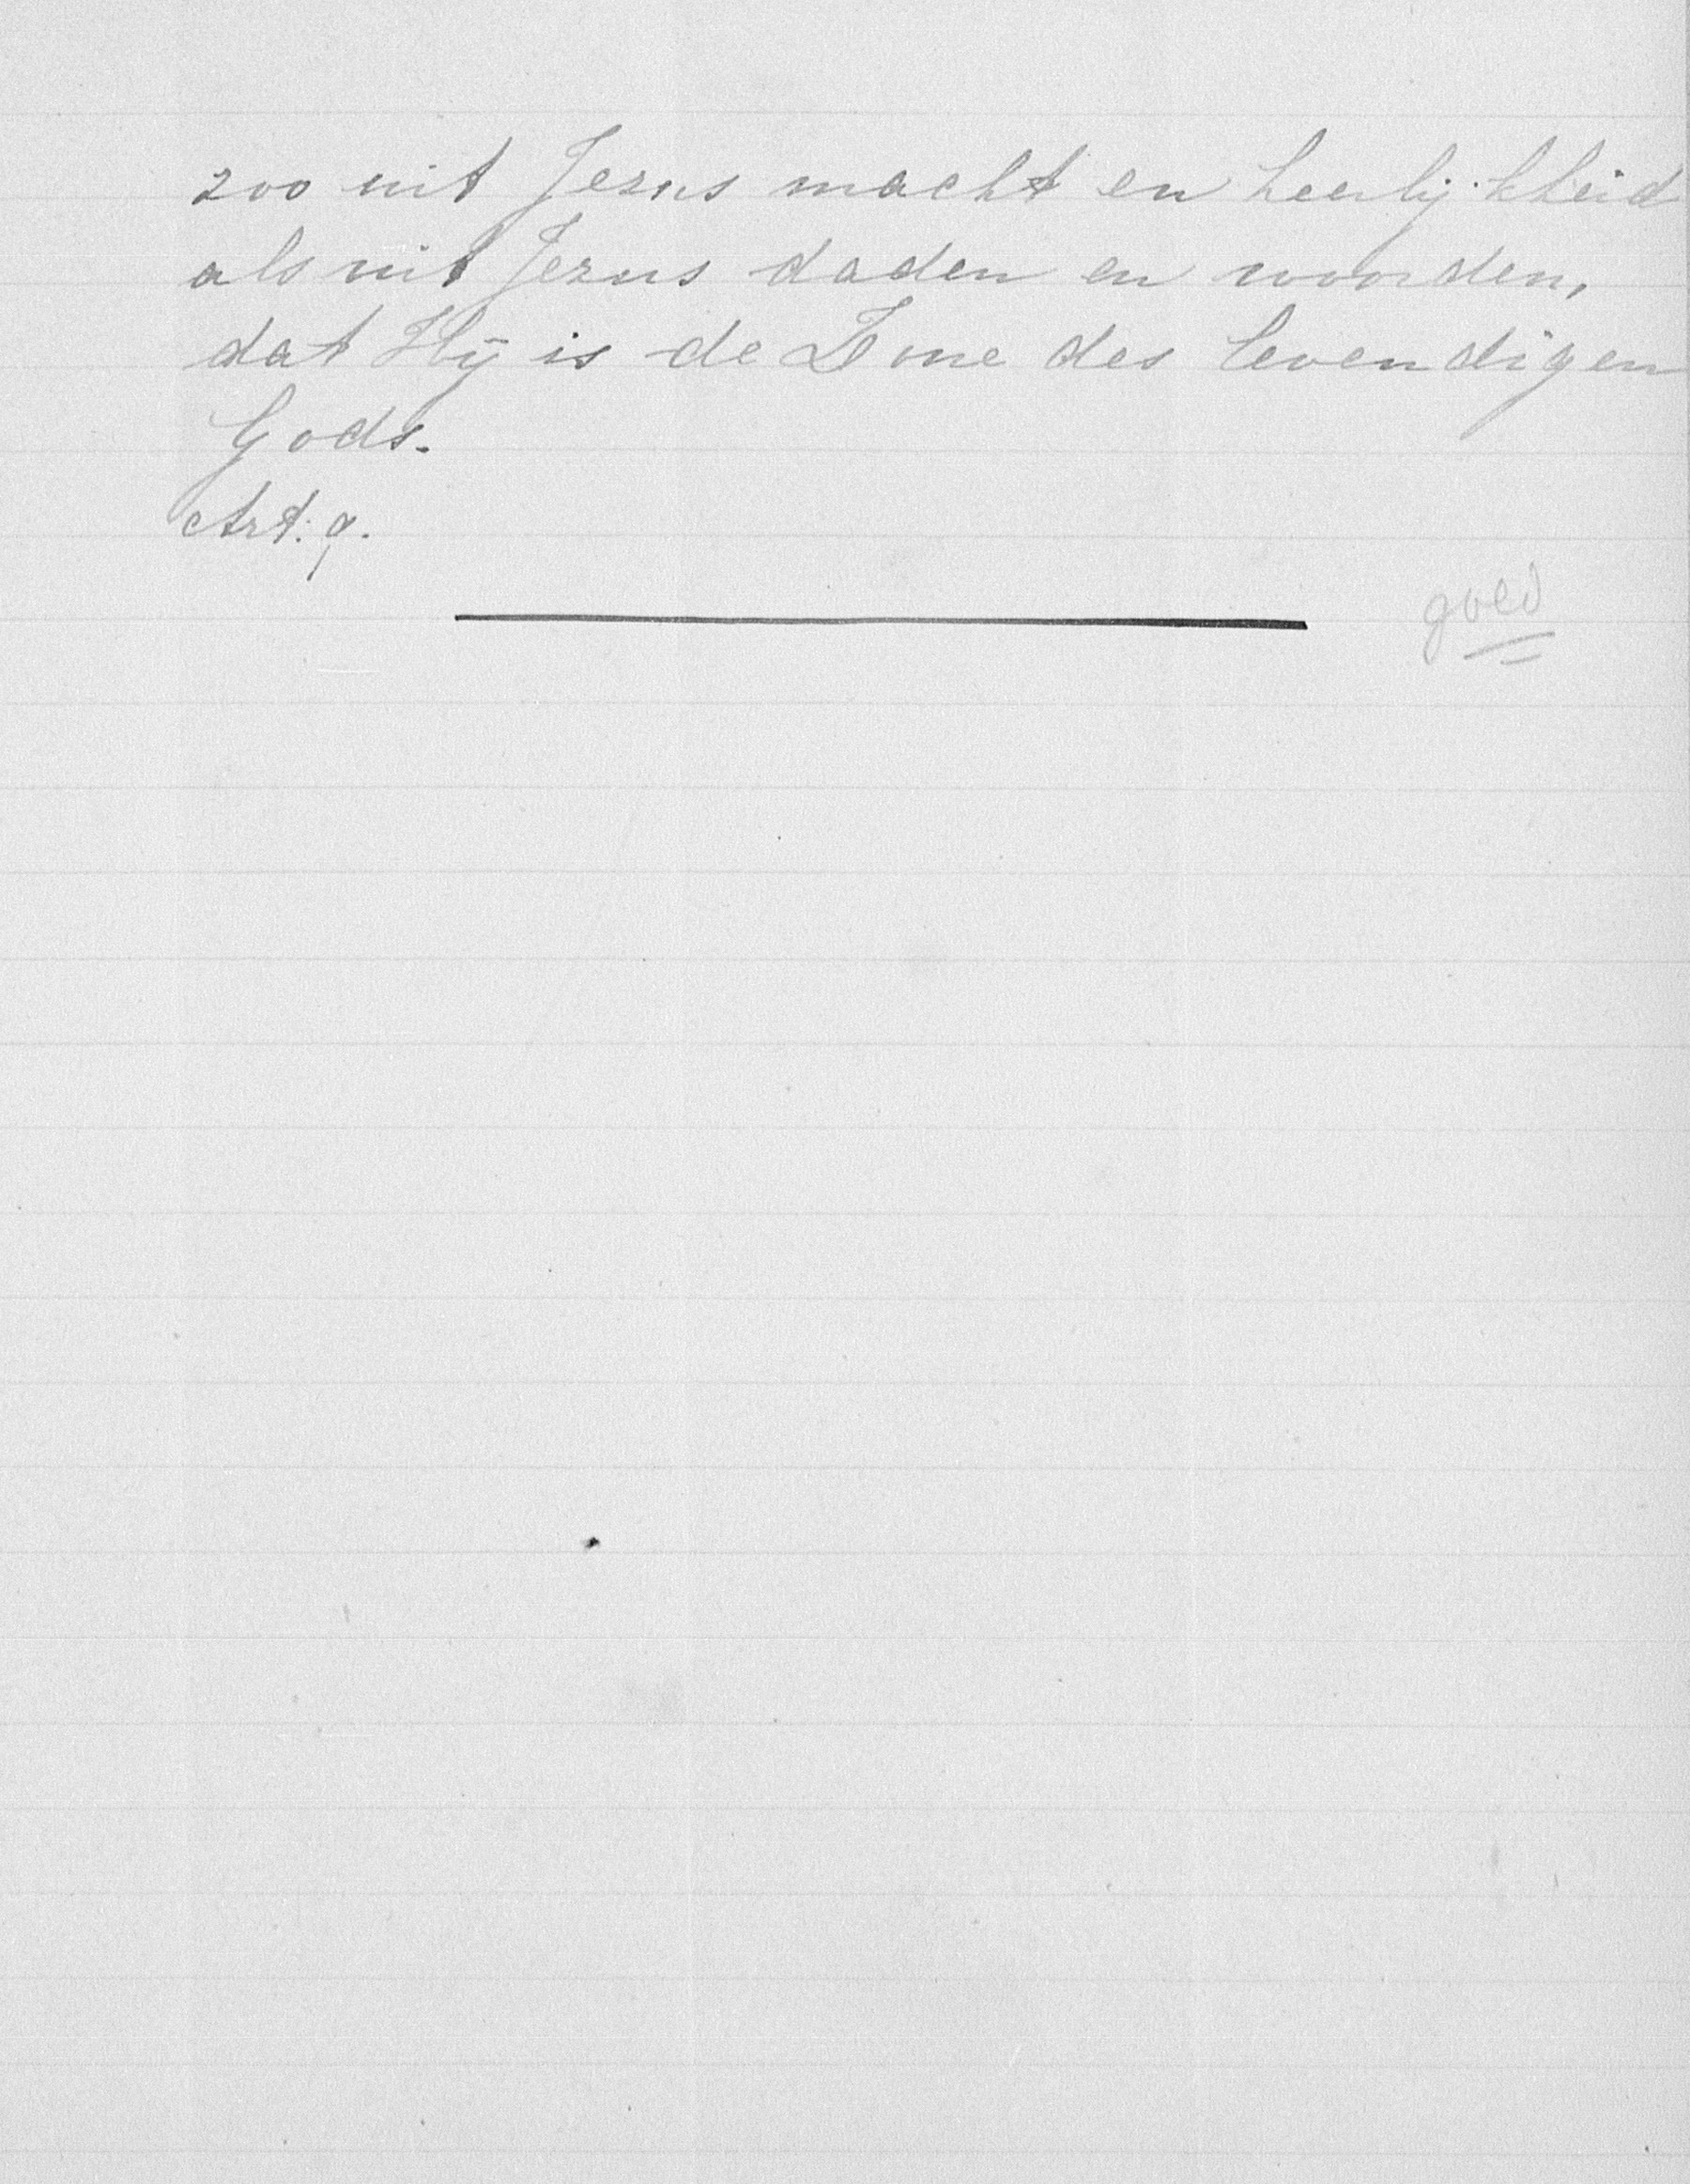 zoo uit Jezus macht en heerlijkheid
als uit Jezus daden en woorden,
dat Hij is de Zone des levendigen
Gods.
Art: 9.
goed